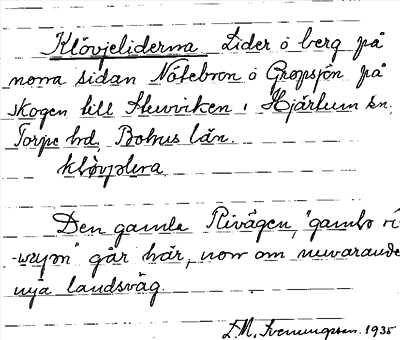 Klövjeliderna Lider o berg på
norra sidan Nötebron o Gropsjön på
skogen till Stenviken i Hjärtum sn.
Torpe hd, Bohus län.
kløvjolera
Den gamla Rivägen, "gambo ri-
-wæjən" går här, norr om nuvarande
nya landsväg.
1935